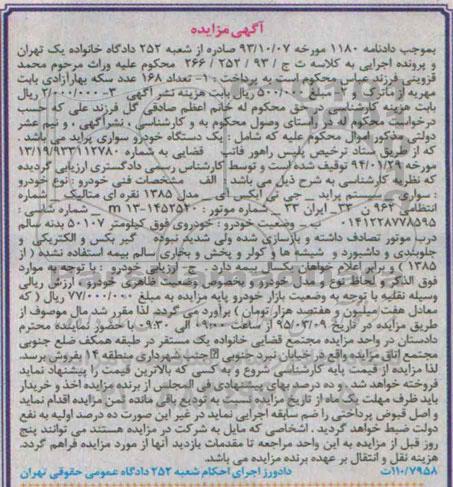 آگهی مزایده
بموجب دادنامه ۱۱۸۰ مورخه ۹۳/۱۰/۰۷ صادره از شعبه ۲۵۲ دادگاه خانواده یک تهران
و پرونده اجرایی به کلاسه ت ج / ۹۳ / ۲۵۲ / ۲۶۶ محکوم علیه وراث مرحوم محمد
قزوینی فرزند عباس محکوم است به پرداخت : ۱- تعداد ۱۶۸ عدد سکه بهارآزادی بابت
مهریه از ماترک ۲- مبلغ ۵۰۰/۰۰۰ ریال بابت هزینه نشر آگهی ۳- ۲/۰۰۰/۰۰۰ ریال
بابت هزینه کارشناسی در حق محکوم له خانم اعظم صادقی گل فرزند علی که حسب
درخواست محکوم له در راستای وصول محکوم به و کارشناسی ، نشر آگهی و نیم عشر
دولتی مذکور اموال محکوم علیه که شامل : یک دستگاه خودرو سواری پراید می باشد .
که از طریق ستاد ترخیص پلیس راهور فاتب قضایی به شماره ۱۳/۱۹/۹۳۳۱۱۲۷۸۰
مورخه ۹۴/۰۱/۲۹ توقیف شده است و توسط کارشناس رسمی دادگستری ارزیابی گردیده
که نظریه کارشناسی به شرح ذیل می باشد : الف _ مشخصات فنی خودرو : نوع خودرو
: سواری _ سیستم پراید _ جی تی ایکس آی _ مدل ۱۳۸۵ نقره ای متالیک _ شماره
انتظامی ۹۶۲ ن ۳۳ ایران ۳۳ _ شماره موتور : ۱۴۵۲۵۲۰-۱۳ m _ شماره شاسی :
۰۱۴۱۲۲۸۷۷۸۵۹۵ ب _ وضعیت خودرو : خودروی فوق کیلومتر ۵۰۱۰۷ بدنه سالم
درب موتور تصادف داشته و بازسازی شده ولی شدید نبوده _ گیربکس و الکتریکی و
جلوبندی و داشبورد و شیشه ها و کولر و پخش و بخاری سالم بیمه استفاده نشده ( از
۱۳۸۵ ) و برابر اعلام خواهان یکسال بیمه دارد . ج _ ارزیابی خودرو : با توجه به موارد
فوق الذکر و لحاظ نوع و مدل خودرو و بخصوص وضعیت ظاهری خودرو ، ارزش ریالی
وسیله نقلیه با توجه به وضعیت بازار خودرو پایه مزایده به مبلغ ۷۷/۰۰۰/۰۰۰ ریال ( که
معادل هفت میلیون و هفتصد هزار تومان ) برآورد می گردد. لذا مقرر شد مال موصوف از
طریق مزایده در تاریخ ۹۵/۰۳/۰۹ از ساعت ۰۹:۰۰ الی ۰۹:۳۰ با حضور نماینده محترم
دادستان در واحد مزایده مجتمع قضایی خانواده یک مستقر در طبقه همکف ضلع جنوبی
مجتمع اتاق مزایده واقع در خیابان نبرد جنوبی جنب شهرداری منطقه ۱۴ بفروش برسد.
لذا مزایده از قیمت پایه کارشناسی شروع و به کسی که بالاترین قیمت را پیشنهاد نماید
فروخته خواهد شد . و ده درصد بهای پیشنهادی فی المجلس از برنده مزایده اخذ و خریدار
باید ظرف مهلت یک ماه از تاریخ مزایده نسبت به تودیع باقی مانده ثمن مزایده اقدام نماید
و اصل قبوض پرداختی را ضم سابقه اجرایی نماید در غیر این صورت ده درصد اولیه به نفع
دولت ضبط خواهد گردید . اشخاصی که مایل به شرکت در مزایده هستند می توانند پنج
روز قبل از مزایده به این واحد مراجعه تا مقدمات بازدید آنها از مورد مزایده فراهم گردد.
هزینه نقل و انتقال بر عهده برنده مزایده می باشد.
۱۱۰/۷۹۵۸ت دادورز اجرای احکام شعبه ۲۵۲ دادگاه عمومی حقوقی تهران